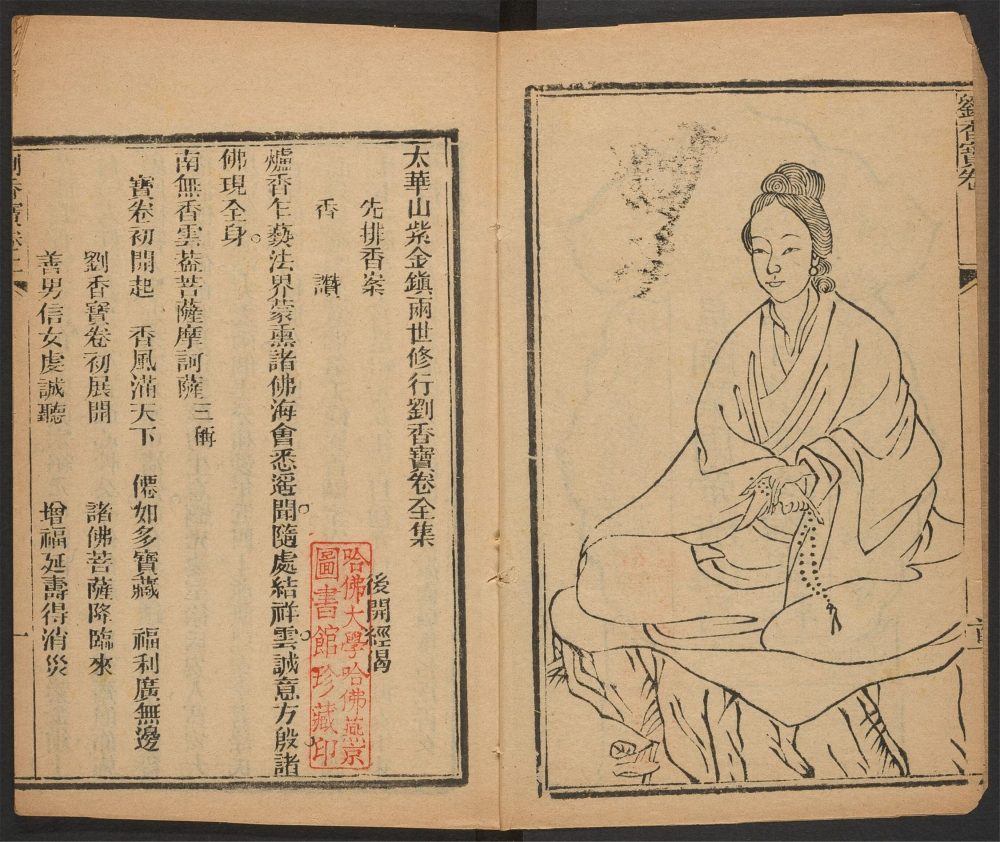 劉香寶卷
太華山紫金鎮兩世修行劉香寶卷全集
先排香案　後開經偈
香　讚
爐香乍爇法界蒙熏諸佛海會悉遙聞。隨處結祥雲。誠意方殷。諸
佛現全身。
南無香雲葢菩薩摩訶薩三稱
寶卷初開起　香風滿天下　僊如多寶藏　福利廣無邊
劉香寶卷初展開　諸佛菩薩降臨來
善男信女虔誠聽　增福延壽得消災
劉香寶卷上　一
哈佛大學哈佛燕京
圖書館珍藏印